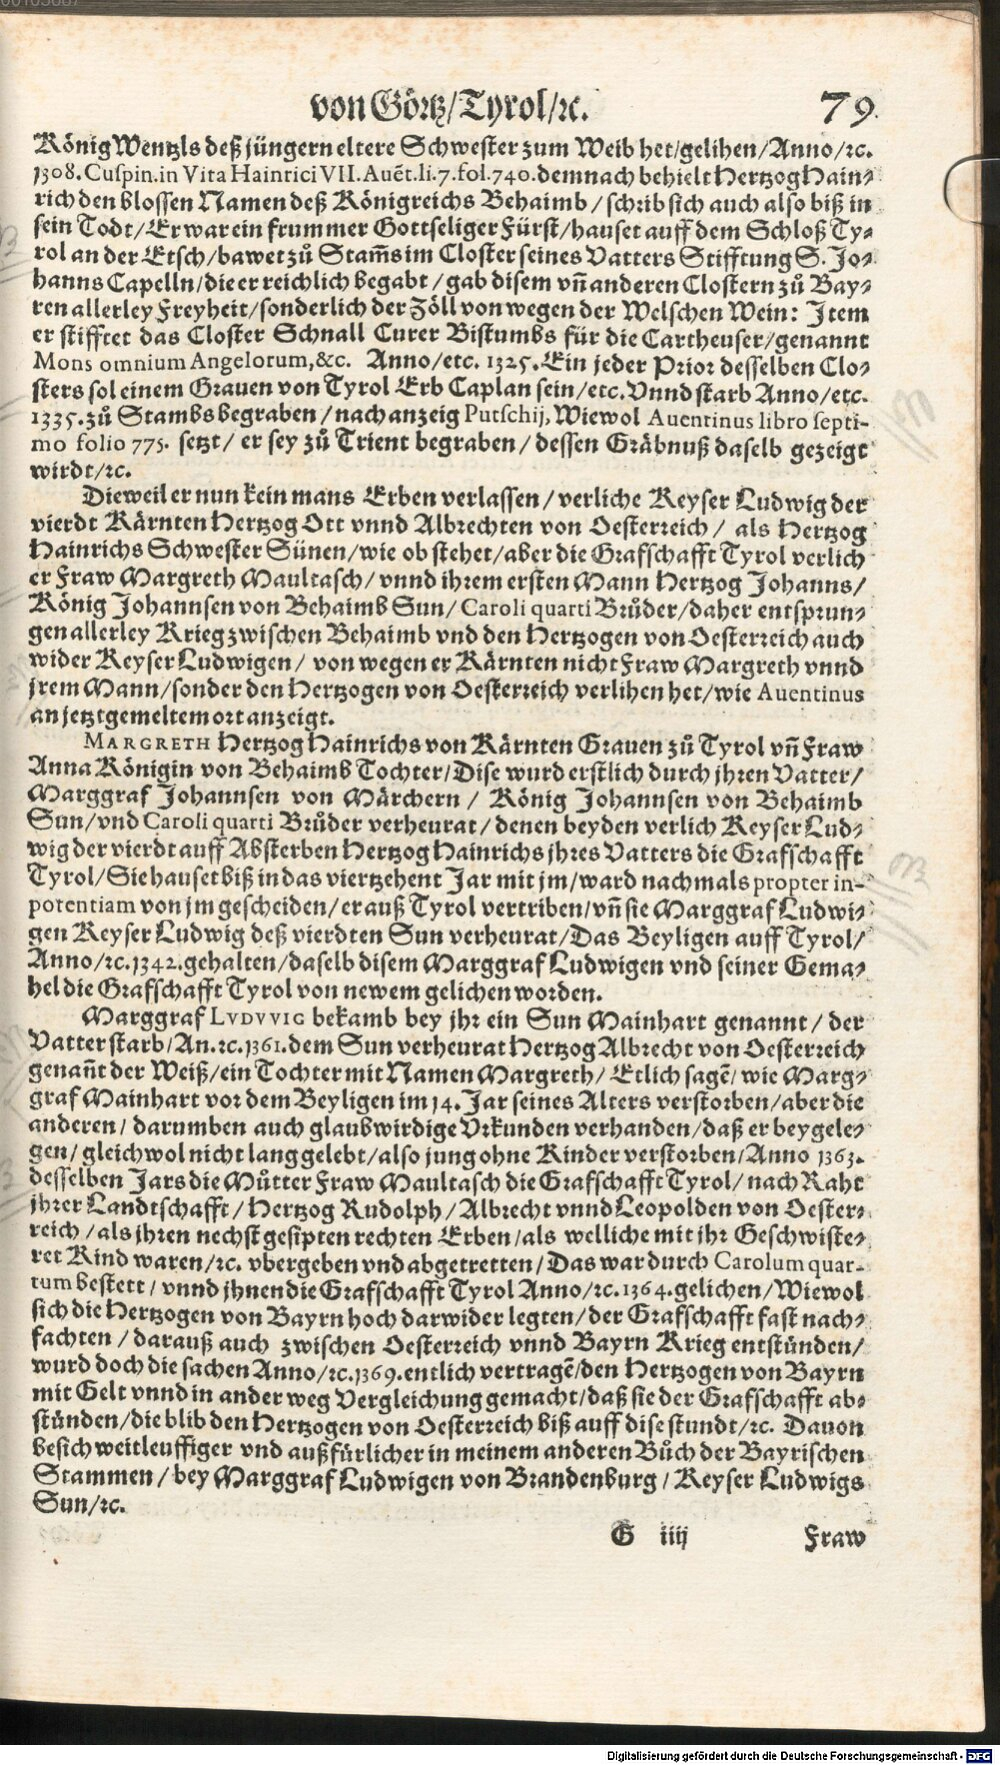 von Görtz/Tyrol/ꝛc. 79
König Wentzls deß jüngern eltere Schwester zum Weib het/gelihen/Anno/ꝛc.
1308. Cuspin. in Vita Hainrici VII. Auẽt. li. 7. fol. 740. demnach behielt Hertzog Hain⸗
rich den blossen Namen deß Königreichs Behaimb/schrib sich auch also biß in
sein Todt/Er war ein frummer Gottseliger Fürst/hauset auff dem Schloß Ty⸗
rol an der Etsch/bawet zů Stam̃s im Closter seines Vatters Stifftung S. Jo⸗
hanns Capelln/die er reichlich begabt/gab disem vñ anderen Clostern zů Bay⸗
ren allerley Freyheit/sonderlich der Zöll von wegen der Welschen Wein: Item
er stifftet das Closter Schnall Curer Bistumbs für die Cartheuser/genannt
Mons omnium Angelorum, &c. Anno/etc. 1325. Ein jeder Prior desselben Clo⸗
sters sol einem Grauen von Tyrol Erb Caplan sein/etc. Vnnd starb Anno/etc.
1335. zů Stambs begraben/nach anzeig Putschij, Wiewol Auentinus libro septi-
mo folio 775. setzt/er sey zů Trient begraben/dessen Gräbnuß daselb gezeigt
wirdt/ꝛc.
Dieweil er nun kein mans Erben verlassen/verliche Keyser Ludwig der
vierdt Kärnten Hertzog Ott vnnd Albrechten von Oesterreich/als Hertzog
Hainrichs Schwester Sünen/wie ob stehet/aber die Grafschafft Tyrol verlich
er Fraw Margreth Maultasch/vnnd ihrem ersten Mann Hertzog Johanns/
König Johannsen von Behaimb Sun/Caroli quarti Brůder/daher entsprun⸗
gen allerley Krieg zwischen Behaimb vnd den Hertzogen von Oesterreich auch
wider Keyser Ludwigen/von wegen er Kärnten nicht Fraw Margreth vnnd
jrem Mann/sonder den Hertzogen von Oesterreich verlihen het/wie Auentinus
an jetztgemeltem ort anzeigt.
MARGRETH Hertzog Hainrichs von Kärnten Grauen zů Tyrol vñ Fraw
Anna Königin von Behaimb Tochter/Dise wurd erstlich durch jhren Vatter/
Marggraf Johannsen von Märchern/König Johannsen von Behaimb
Sun/vnd Caroli quarti Brůder verheurat/denen beyden verlich Keyser Lud⸗
wig der vierdt auff Absterben Hertzog Hainrichs jhres Vatters die Grafschafft
Tyrol/Sie hauset biß in das viertzehent Jar mit jm/ward nachmals propter in-
potentiam von jm gescheiden/er auß Tyrol vertriben/vñ sie Marggraf Ludwi⸗
gen Keyser Ludwig deß vierdten Sun verheurat/Das Beyligen auff Tyrol/
Anno/ꝛc. 1342. gehalten/daselb disem Marggraf Ludwigen vnd seiner Gema⸗
hel die Grafschafft Tyrol von newem gelichen worden.
Marggraf LVDVVIG bekamb bey jhr ein Sun Mainhart genannt/der
Vatter starb/An. ꝛc. 1361. dem Sun verheurat Hertzog Albrecht von Oesterreich
genañt der Weiß/ein Tochter mit Namen Margreth/Etlich sagẽ/wie Marg⸗
graf Mainhart vor dem Beyligen im 14. Jar seines Alters verstorben/aber die
anderen/darumben auch glaubwirdige Vrkunden verhanden/daß er beygele⸗
gen/gleichwol nicht lang gelebt/also jung ohne Kinder verstorben/Anno 1363.
desselben Jars die Můtter Fraw Maultasch die Grafschafft Tyrol/nach Raht
jhrer Landtschafft/Hertzog Rudolph/Albrecht vnnd Leopolden von Oester⸗
reich/als jhren nechst gesipten rechten Erben/als welliche mit jhr Geschwiste⸗
ret Kind waren/ꝛc. vbergeben vnd abgetretten/Das war durch Carolum quar-
tum bestett/vnnd jhnen die Grafschafft Tyrol Anno/ꝛc. 1364. gelichen/Wiewol
sich die Hertzogen von Bayrn hoch darwider legten/der Grafschafft fast nach⸗
fachten/darauß auch zwischen Oesterreich vnnd Bayrn Krieg entstünden/
wurd doch die sachen Anno/ꝛc. 1369. entlich vertragẽ/den Hertzogen von Bayrn
mit Gelt vnnd in ander weg Vergleichung gemacht/daß sie der Grafschafft ab⸗
stünden/die blib den Hertzogen von Oesterreich biß auff dise stundt/ꝛc. Dauon
besich weitleuffiger vnd außfürlicher in meinem anderen Bůch der Bayrischen
Stammen/bey Marggraf Ludwigen von Brandenburg/Keyser Ludwigs
Sun/ꝛc.
G iiij Fraw
Digitalisierung gefördert durch die Deutsche Forschungsgemeinschaft - DFG